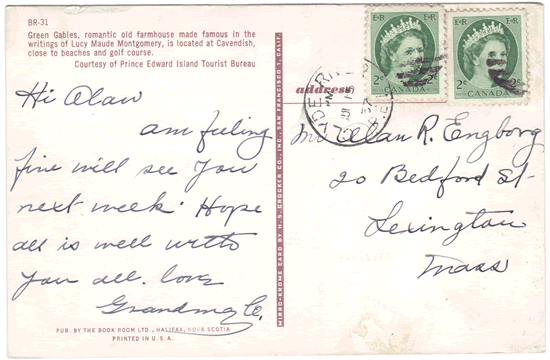 BR-31
Green Gables, romantic old farmhouse made famous in the
writings of Lucy Maude Montgomery, is located at Cavendish,
close to beaches and golf course.
Courtesy of Prince Edward Island Tourist Bureau
Hi Alan
am feeling
fine will see You
next week. Hope
all is well with
you all. love
Grandma C.
PUB. BY THE BOOK ROOM LTD., HALIFAX, NOVA SCOTIA
PRINTED IN U.S.A.
MIRRO-KROME CARD BY H. S. CROCKER CO., INC., SAN FRANCISCO 1, CALIF.
address
E R
2¢
CANADA
E R
2¢ 2¢
CANADA
CLYDE RIVER
P.E.I.
Mr Allan R. Engborg
20 Bedford St.
Lexington
Mass